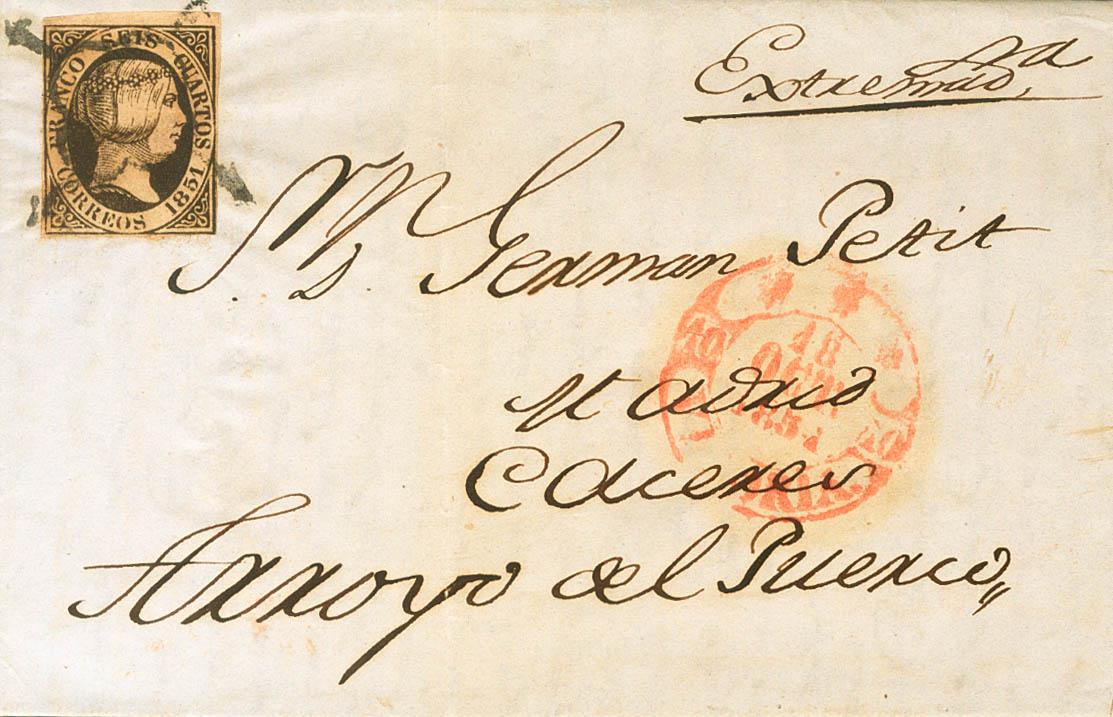 FRANCO SEIS CUARTOS
CORREOS 1851
Extremad.ª
S.r D.n German Petit
Madrid
Caceres
Arroyo del Puerco
10
18
1851
10